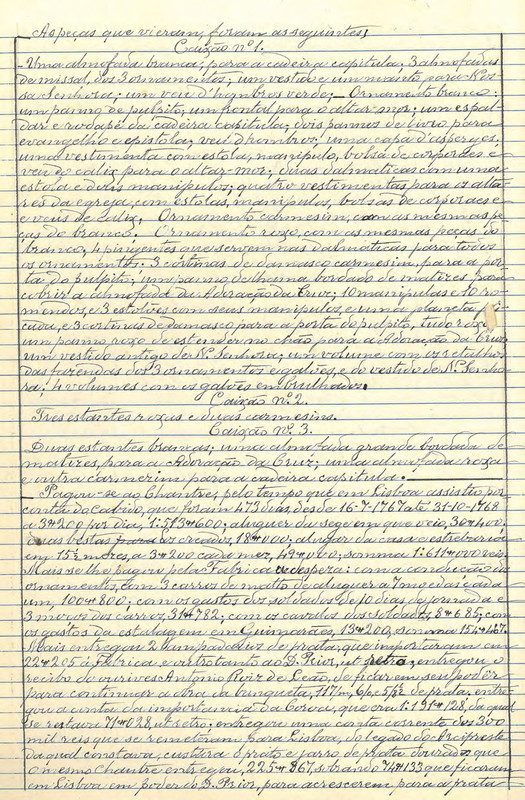 As peças que vieram, foram as seguintes;
Caixão Nº 1.
Uma almofada branca, para a cadeira capitula; 3 almofadas
de missal, dos 3 ornamentos; um vestido e um manto para Nos-
sa Senhora; um veu d'hombros verde. Ornamento branco:
um panno de pulpito; um frontal para o altar mor; um espal-
dar e rodapé da cadeira capitula; dois pannos de livro para
evangelho e epistola; veu d'hombros; uma capa d'asperges;
uma vestimenta com estola, manipulo, bolsa de corporaes e
veu de calix para o altar-mor; duas dalmaticas com uma
estola e dois manipulos; quatro vestimentas para os alta-
res da egreja, com estolas, manipulos, bolsas de corporaes
e veus de calix. Ornamento carmesim, com as mesmas pe-
ças do branco. Ornamento roxo, com as mesmas peças do
branco, 4 que servem nas dalmaticas para todos
os ornamentos. 3 cortinas de damasco carmesim, para a por-
ta do pulpito; um panno de lhama bordado de matizes para
cobrir a almofada da Adoração da Cruz; 10 manipulos e 10 ro-
mendos, e 3 estolões com seus manipulos, e uma planeta
cada, e 3 cortinas de damasco para a porta do pulpito, tudo roxo;
um panno roxo de estender no chão para a Adoração da Cruz;
um vestido antigo de N. Senhora; um volume com os retalhos
das fazendas dos 3 ornamentos e galões, e do vestido de N. Senho-
ra; 4 volumes com os galões embrulhados.
Caixão Nº 2.
Tres estantes roxas e duas carmesins.
Caixão Nº 3.
Duas estantes brancas; uma almofada grande bordada de
matizes, para a Adoração da Cruz; uma almofada roxa
e outra carmezim para a cadeira capitula.
Pagou-se ao Chantre, pelo tempo que em Lisboa assistiu por
conta do cabido, que foram 473 dias, desde 16-7-1767 até 31-10-1768
a 3#200 por dia, 1:513#600; aluguer da sege em que veio, 30#400,
duas bestas para os creados, 18#000; aluguer da casa e estrebaria
em 15½ mezes, a 3#200 cada mez, 49#000; somma 1:611#000 reis.
Mais se lhe pagou pela Fabrica a despeza: com a conducção dos
ornamentos, em 3 carros de matto de aluguer a 7 moedas cada
um, 100#800; com os gastos dos soldados de 10 dias de jornada e
3 moços dos carros, 31#782; com os cavalos dos soldados, 8#685; com
os gastos da estalagem em Guimarães, 13#200, somma 154#467.
Mais entregou 2 de prata, que importaram em
22#205 á Fabrica, e outro tanto ao D. Prior, ut retro; entregou o
recibo do ourives Antonio Roiz de Leão, de ficar em seu poder
para continuar a obra da banqueta, 117m, 6/o, 5/8 de prata; entre-
gou a conta da importancia da Corôa, que era 1:191#128, da qual
se restava 71#028, ut retro; entregou uma conta corrente dos 300
mil reis que se remetteram para Lisboa, do legado do Arcipreste
da qual constava, custára o prato e jarro de prata dourado que
o mesmo Chantre entregou, 225#867, sobrando 74#133 que ficaram
em Lisboa em poder do D. Prior, para acrescerem para a prata